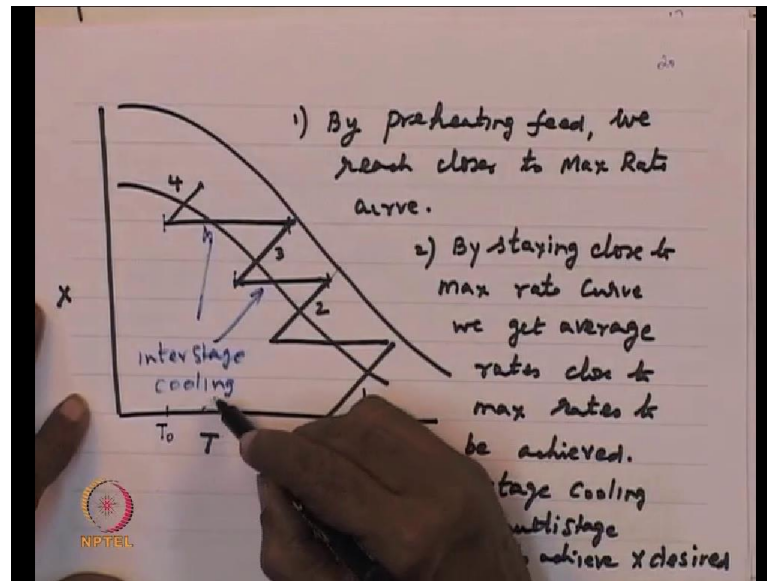 1) By preheating feed, we
reach closer to Max Rate
curve.
2) By staying close to
max rate Curve
we get average
rates close to
max rates to
be achieved.
tage Cooling
ultistage
achieve X desired
4
3
2
1
X
interstage
cooling
To
T
NPTEL